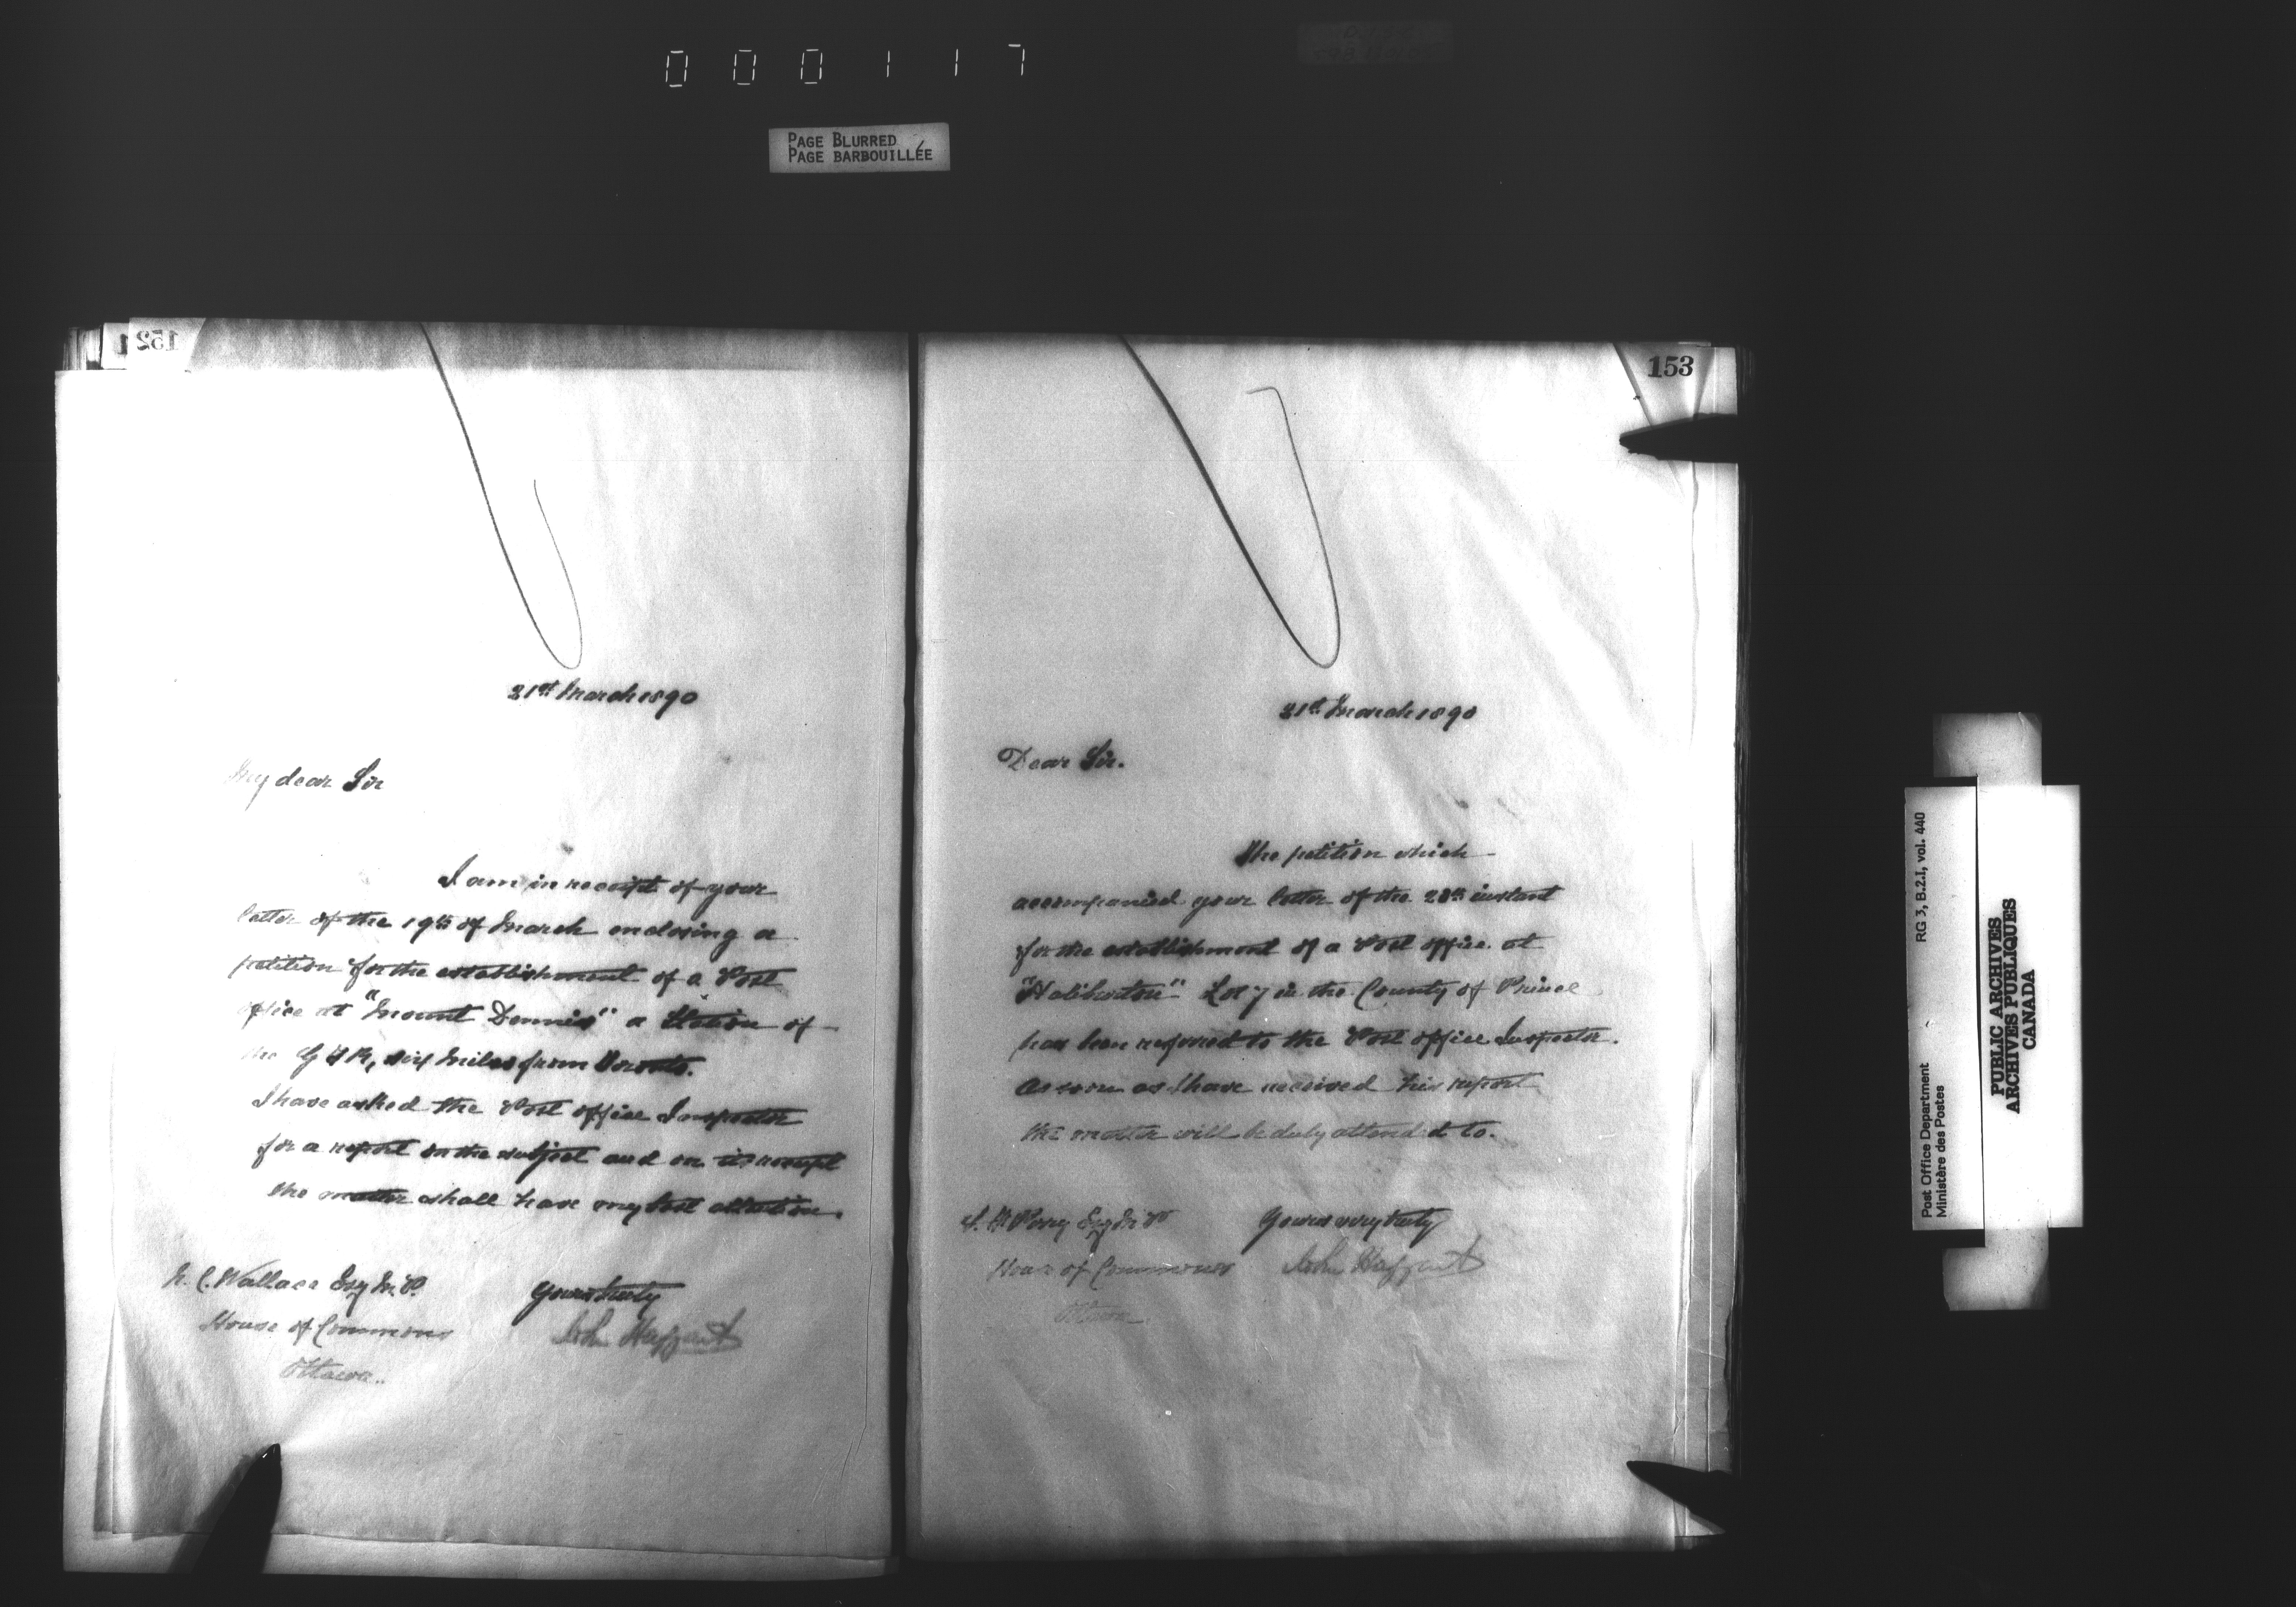 000117
PAGE BLURRED
PAGE BARBOUILLÉE
152
21st March 1890
My dear Sir
I am in receipt of your
letter of the 19th of March enclosing a
petition for the establishment of a Post
office at "Mount Dennis" a Station of
the G T R, six miles from Toronto.
I have asked the Post office Inspector
for a report on the subject and on its receipt
the matter shall have my best attention.
N. C. Wallace Esq M.P.
Yours truly
House of Commons
John Haggart
Ottawa.
153
21st March 1890
Dear Sir.
The petition which
accompanied your letter of the 20th instant
for the establishment of a Post office at
"Haliburton" Lot 7 in the County of Prince
has been referred to the Post office Inspector.
As soon as I have received his report
the matter will be duly attended to.
S. F. Perry Esq M P
Yours very truly
House of Commons
John Haggart
Ottawa
RG 3, B.2.I, vol. 440
Post Office Department
Ministère des Postes
PUBLIC ARCHIVES
ARCHIVES PUBLIQUES
CANADA